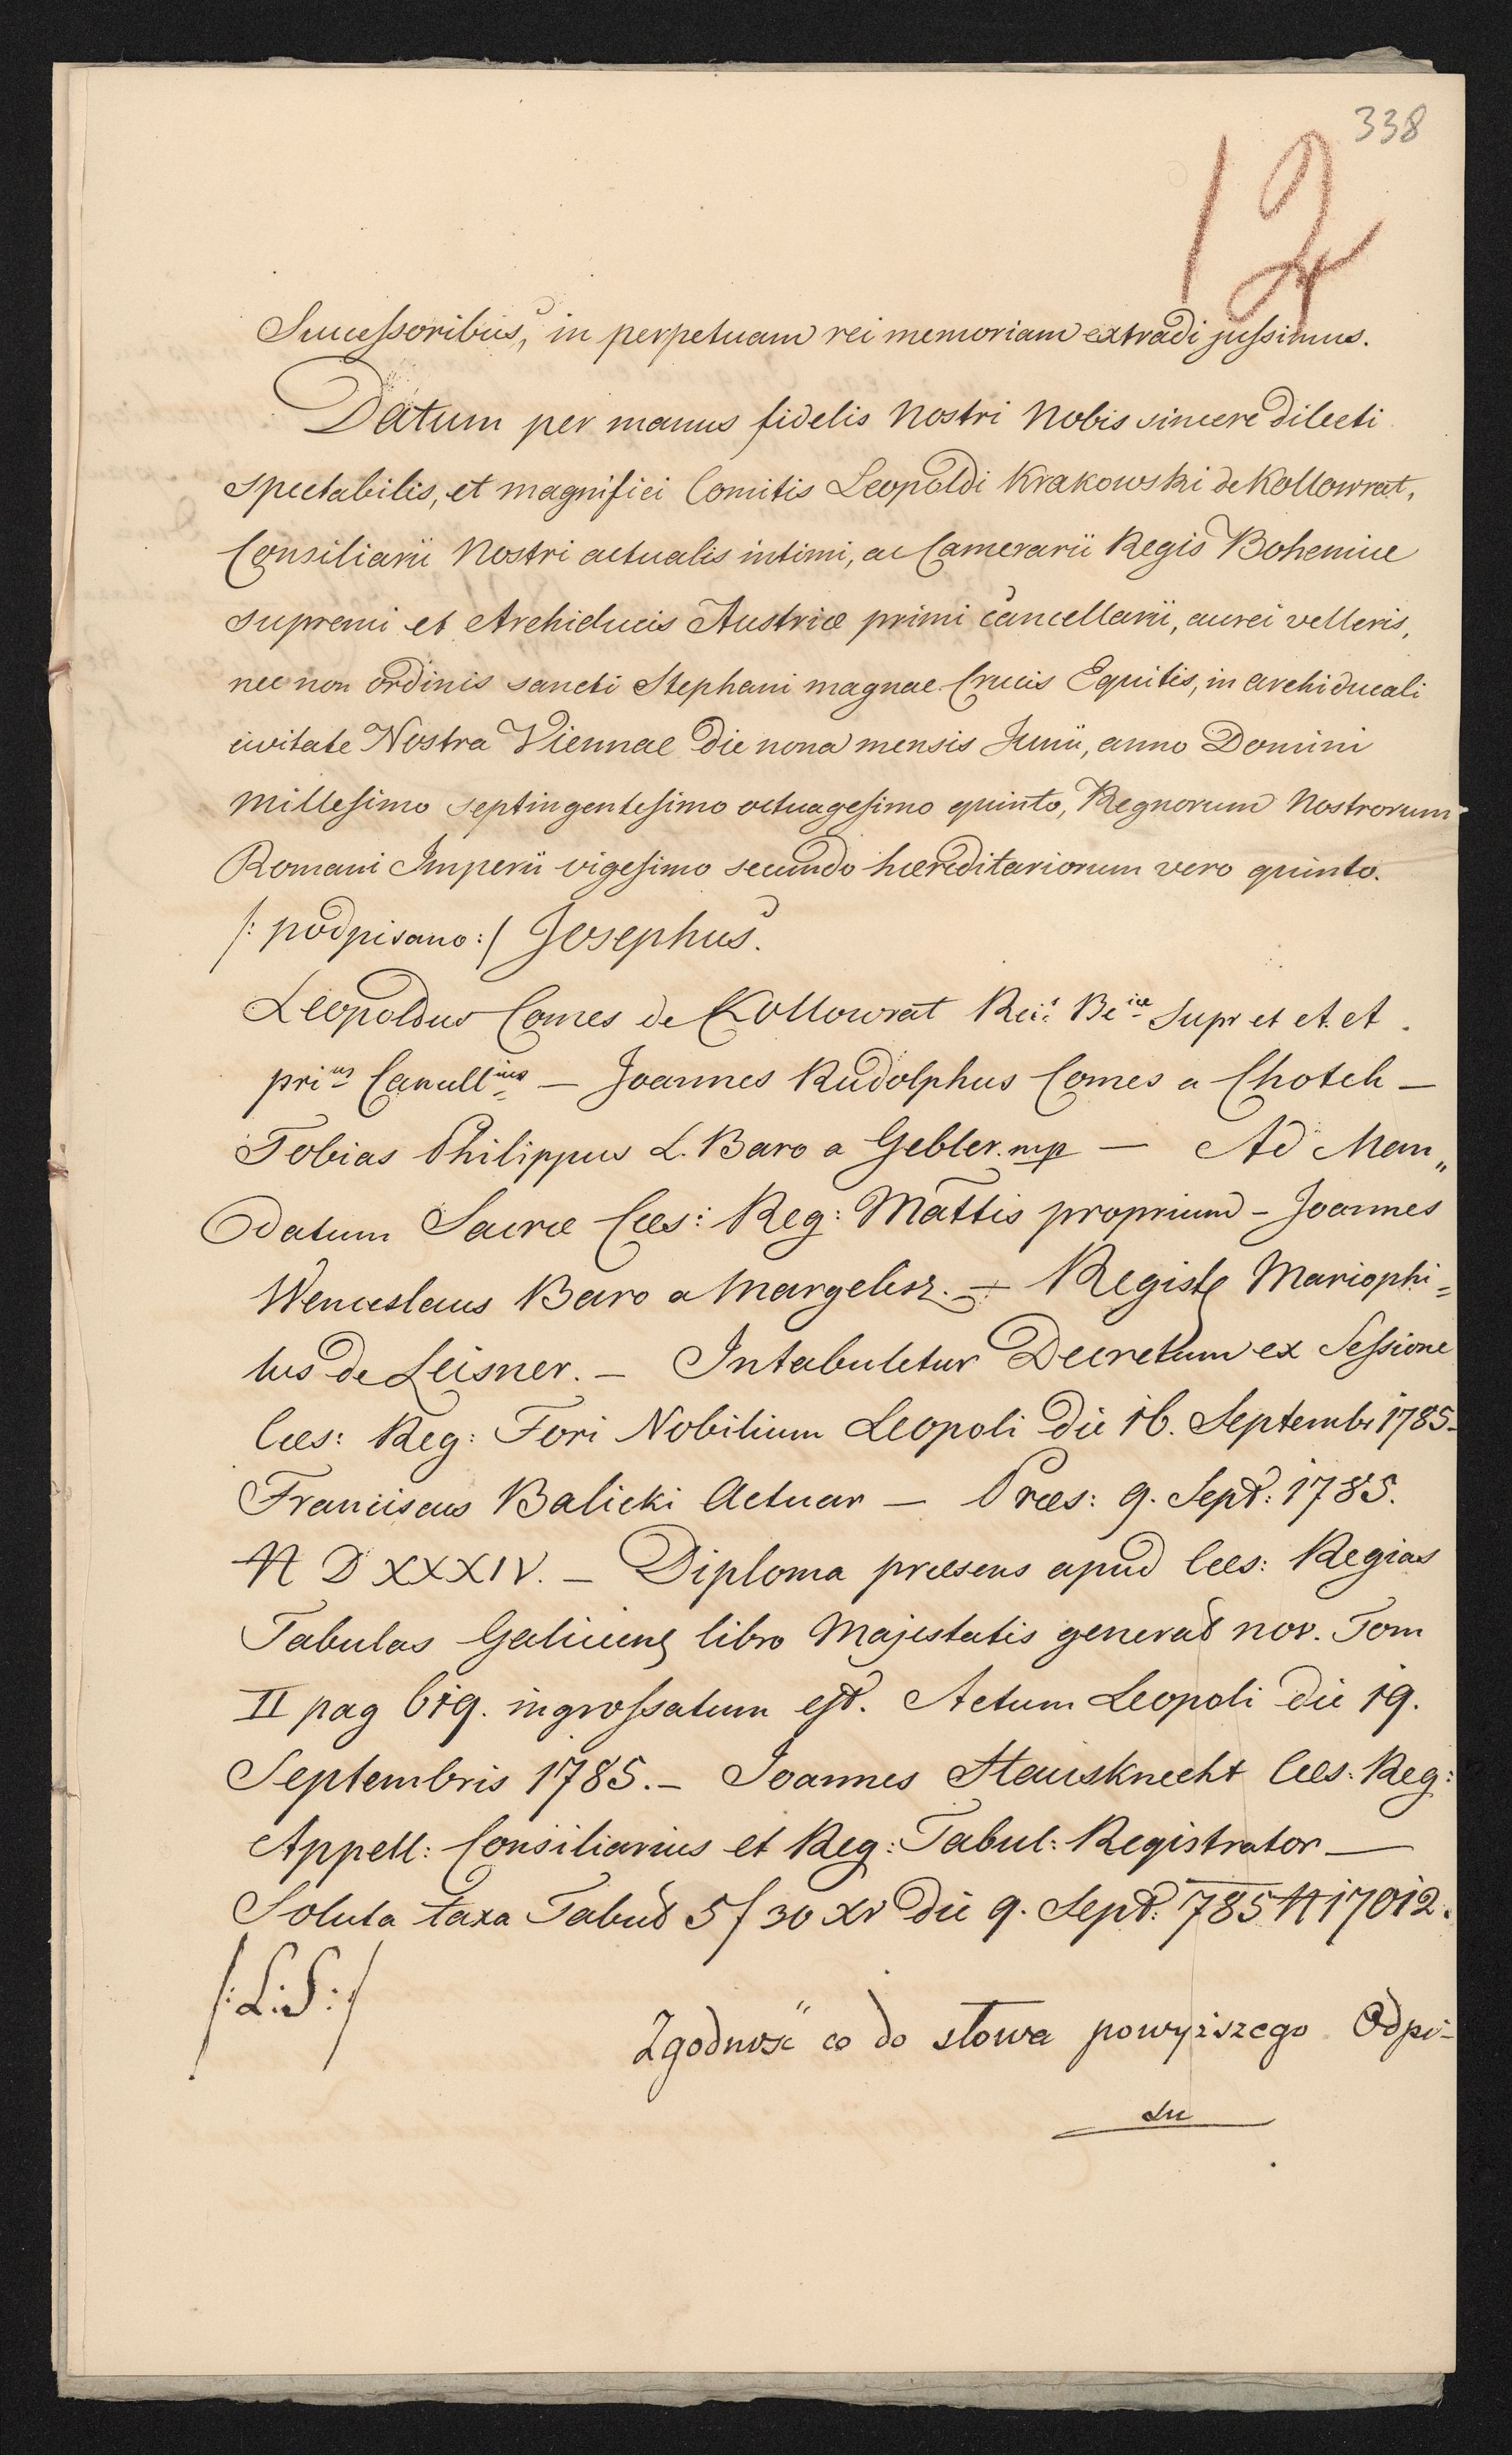 338
12
Successoribus, in perpetuam rei memoriam extradi jussimus.
Datum per manus fidelis Nostri Nobis sincere dilecti
spectabilis, et magnifici Comitis Leopoldi Krakowski de Kollowrat,
Consiliarii Nostri actualis intimi, ac Camerarii Regis Bohemiae
supremi et Archiducis Austriæ primi cancellarii, aurei velleris,
nec non ordinis sancti Stephani magnae Crucis Equitis, in archiducali
civitate Nostra Viennae die nona mensis Junii, anno Domini
Millesimo septingentesimo octuagesimo quinto, Regnorum Nostrorum
Romani Imperii vigesimo secundo hæreditariorum vero quinto.
/: podpisano :/ Josephus.
Leopoldus Comes de Kollowrat Rei: Beiæ Supr et A. A.
prius Canullius — Joannes Rudolphus Comes a Chotek —
Tobias Philippus L. Baro a Gebler. mp — Ad Man„
datum Sacræ Cæs: Reg: Mattis proprium – Joannes
Wenceslaus Baro a Margelisz. — Registr Mariophi=
lus de Leisner. — Intabuletur Decretum ex Sessione
Cæs: Reg: Fori Nobilium Leopoli die 16. Septembr 1785–
Franciscus Balicki Actuar — Præs: 9. Sept: 1785.
N DXXXIV. — Diploma præsens apud Cæs: Regias
Tabulas Galicien libro Majestatis general nov. Tom
II pag 619. ingrossatum est. Actum Leopoli die 19.
Septembris 1785. — Joannes Hausknecht Cæs: Reg:
Appell: Consiliarius et Reg: Tabul: Registrator —
Soluta taxa Tabul 5 f 30 xr die 9. Sept: 785 N 17012.
/: L. S :/
Zgodność co do słowa powyższego Odpi-
su